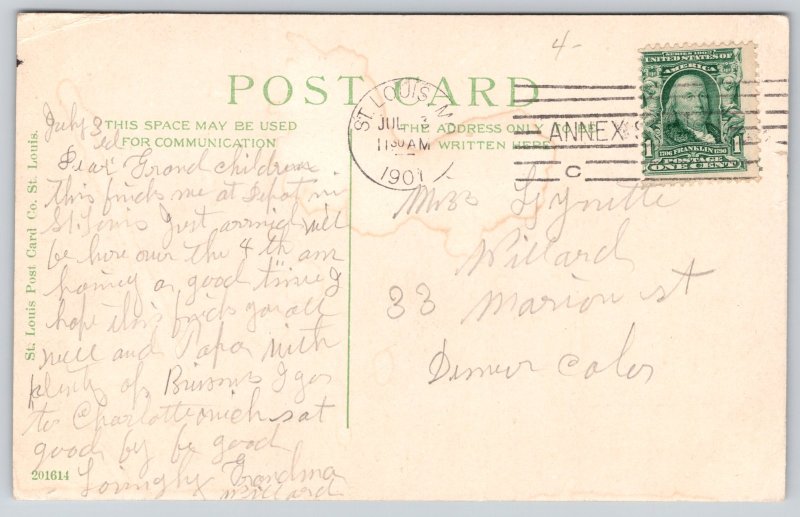 4-
POST CARD
THIS SPACE MAY BE USED
FOR COMMUNICATION
THE ADDRESS ONLY TO BE
WRITTEN HERE
ST. LOUIS, M
JUL 3
1130 AM
1907
ANNEX S
C
SERIES 1902
UNITED STATES OF
AMERICA
1 1
1706 FRANKLIN 1790
POSTAGE
ONE CENT
July 3d
Dear Grand children
this finds me at Depot in
St. Louis Just arrived will
be here over the 4th am
haveing a good time I
hope this finds you all
well and Papa with
plenty of Buisons I go
to Charlotte mich sat
good by be good
Lovingly Grandma
Willard
Miss Lynette
Willard
33 Marion st
Denver Colo
St. Louis Post Card Co. St. Louis.
201614